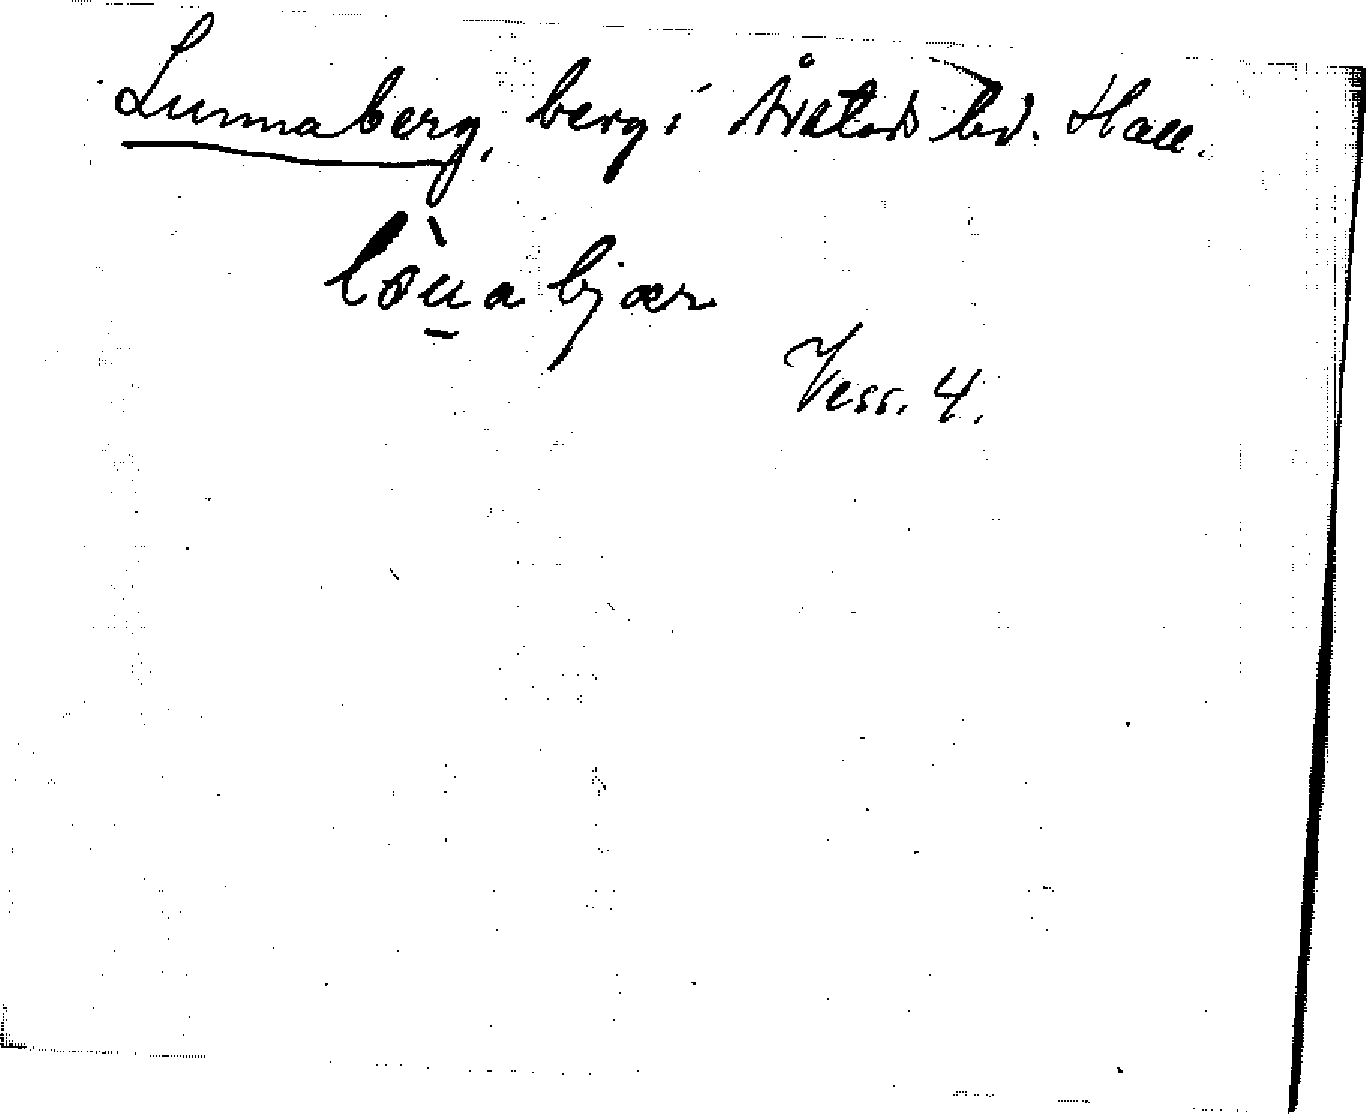 Lunnaberg, berg i Årstads hd. Hall.
lònabjær
Vess. 4.